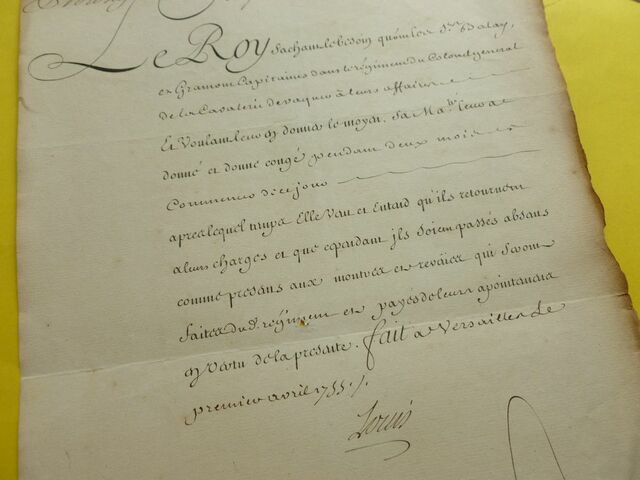 Le Roy Sachant le besoin qu'ont les Srs Balay,
et Gramont Capitaines dans le régiment du Colonel general
de la Cavalerie de vaquer à leurs affaires
Et Voulant leur en donner le moyen. Sa Maté. leur a
donné et donne congé pendant deux mois à
Commencer de ce jour
apres lequel temps Elle Veut et Entend qu'ils retournent
a leurs charges et que cependant ils soient passés absans
comme presens aux montres et reveües qui seront
faites dud. regiment et payés de leurs apointemens
en vertu de la presente. fait a Versailles le
premier avril 1755 ./.
Louis